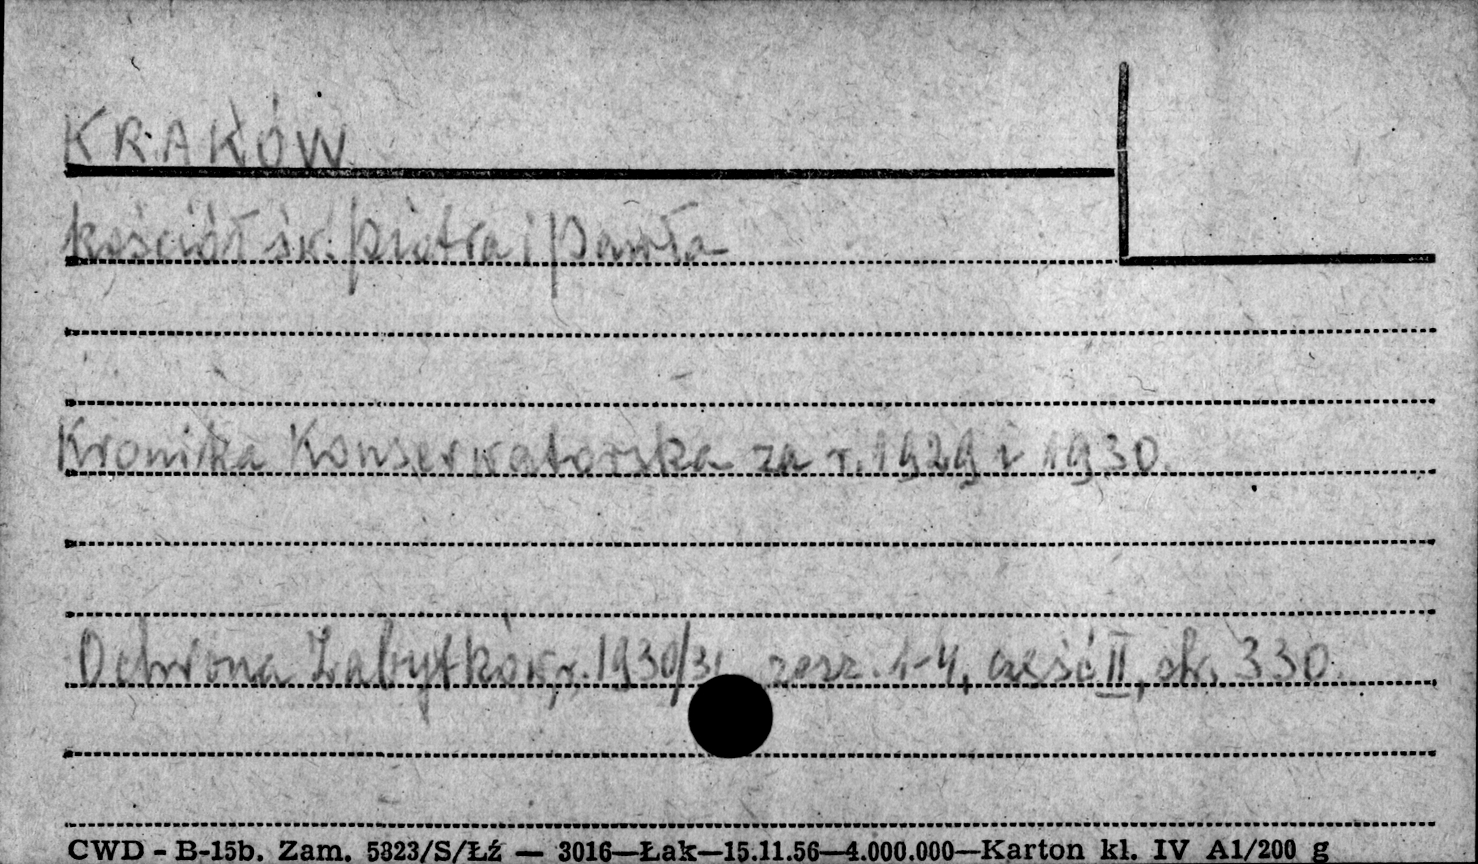 KRAKÓW
kościół św. Piotra i Pawła
Kronika Konserwatorska za r. 1929 i 1930.
Ochrona Zabytków, r. 1930/31, zesz. 1-4, część II, str. 330.
CWD - B-15b. Zam. 5823/S/Łź — 3016—Łak—15.11.56—4.000.000—Karton kl. IV A1/200 g